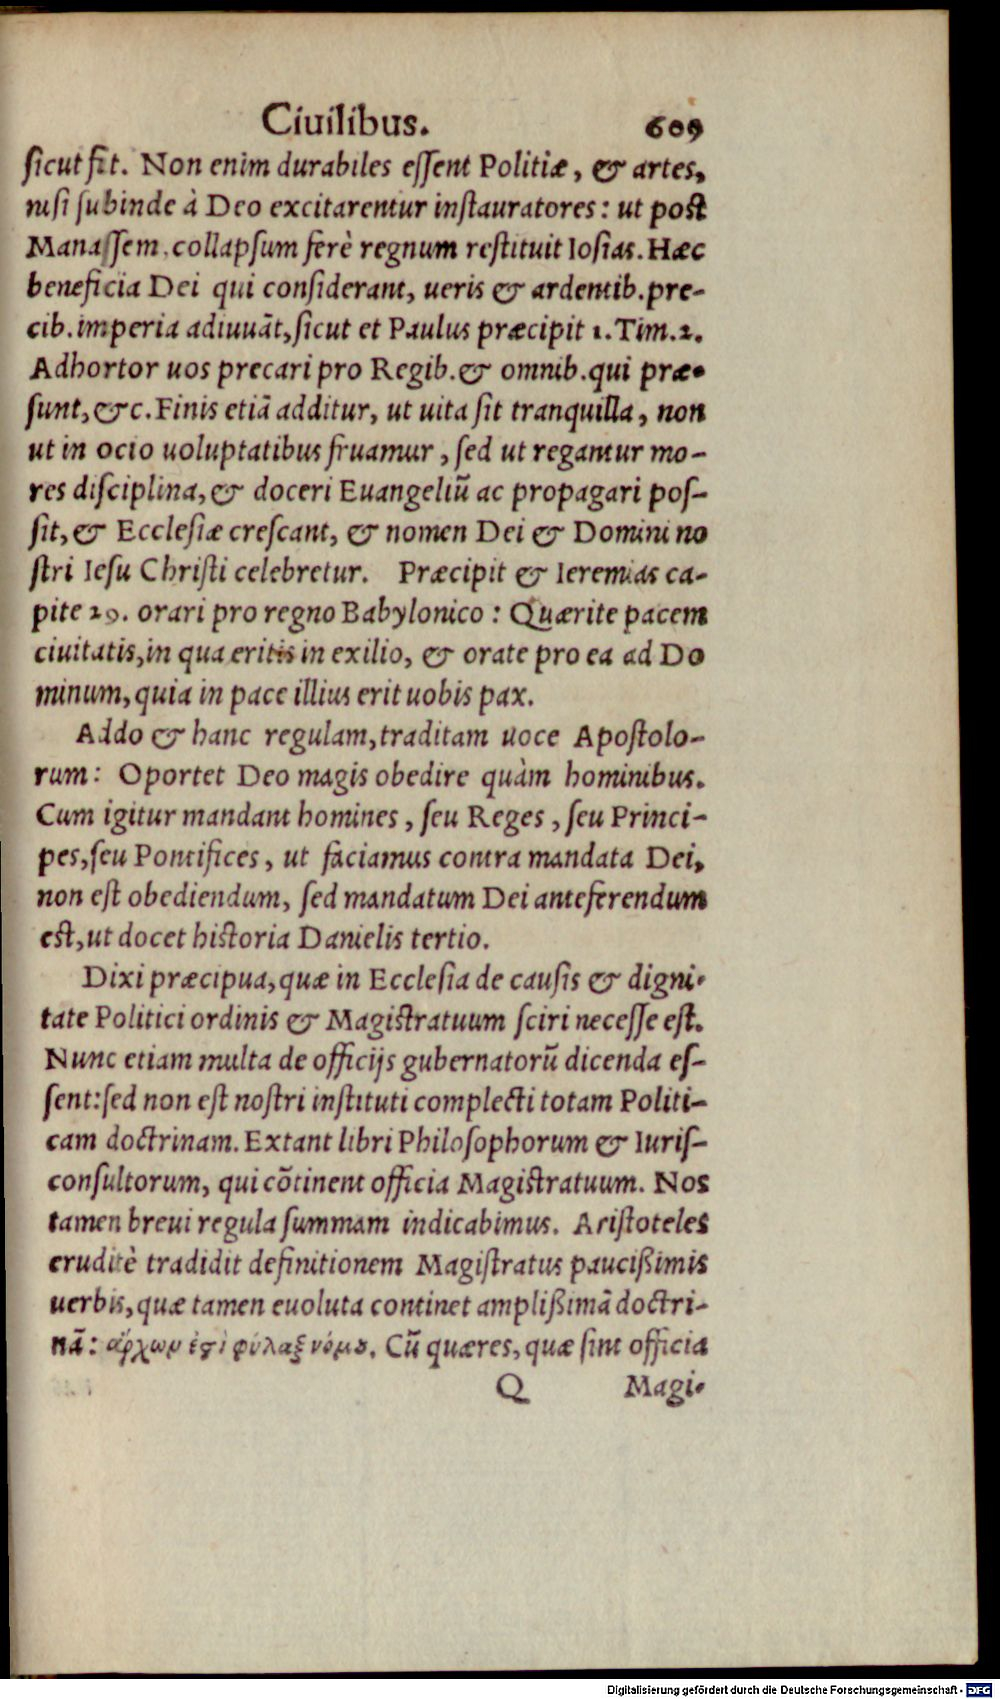 Ciuilibus. 609
ſicut fit. Non enim durabiles eſſent Politiæ, & artes,
niſi ſubinde à Deo excitarentur inſtauratores: ut post
Manaſſem, collapſum ferè regnum reſtituit Ioſias. Hæc
beneficia Dei qui conſiderant, ueris & ardentib. pre-
cib. imperia adiuuāt, ſicut et Paulus præcipit 1. Tim. 2.
Adhortor uos precari pro Regib. & omnib. qui præ-
ſunt, &c. Finis etiā additur, ut uita ſit tranquilla, non
ut in ocio uoluptatibus fruamur, ſed ut regantur mo-
res diſciplina, & doceri Euangeliū ac propagari poſ-
ſit, & Eccleſiæ creſcant, & nomen Dei & Domini no
ſtri Ieſu Chriſti celebretur. Præcipit & Ieremias ca-
pite 29. orari pro regno Babylonico: Quærite pacem
ciuitatis, in qua eritis in exilio, & orate pro ea ad Do
minum, quia in pace illius erit uobis pax.
Addo & hanc regulam, traditam uoce Apoſtolo-
rum: Oportet Deo magis obedire quàm hominibus.
Cum igitur mandant homines, ſeu Reges, ſeu Princi-
pes, ſeu Pontifices, ut faciamus contra mandata Dei,
non eſt obediendum, ſed mandatum Dei anteferendum
eſt, ut docet hiſtoria Danielis tertio.
Dixi præcipua, quæ in Eccleſia de cauſis & digni-
tate Politici ordinis & Magiſtratuum ſciri neceſſe eſt.
Nunc etiam multa de officijs gubernatorū dicenda eſ-
ſent: ſed non eſt noſtri inſtituti complecti totam Politi-
cam doctrinam. Extant libri Philoſophorum & Iuriſ-
conſultorum, qui cōtinent officia Magiſtratuum. Nos
tamen breui regula ſummam indicabimus. Ariſtoteles
eruditè tradidit definitionem Magiſtratus pauciſſimis
uerbis, quæ tamen euoluta continet ampliſſimā doctri-
nā: ἄρχων ἐϛὶ φύλαξ νόμȣ. Cū quæres, quæ ſint officia
Q Magi-
Digitalisierung gefördert durch die Deutsche Forschungsgemeinschaft - DFG